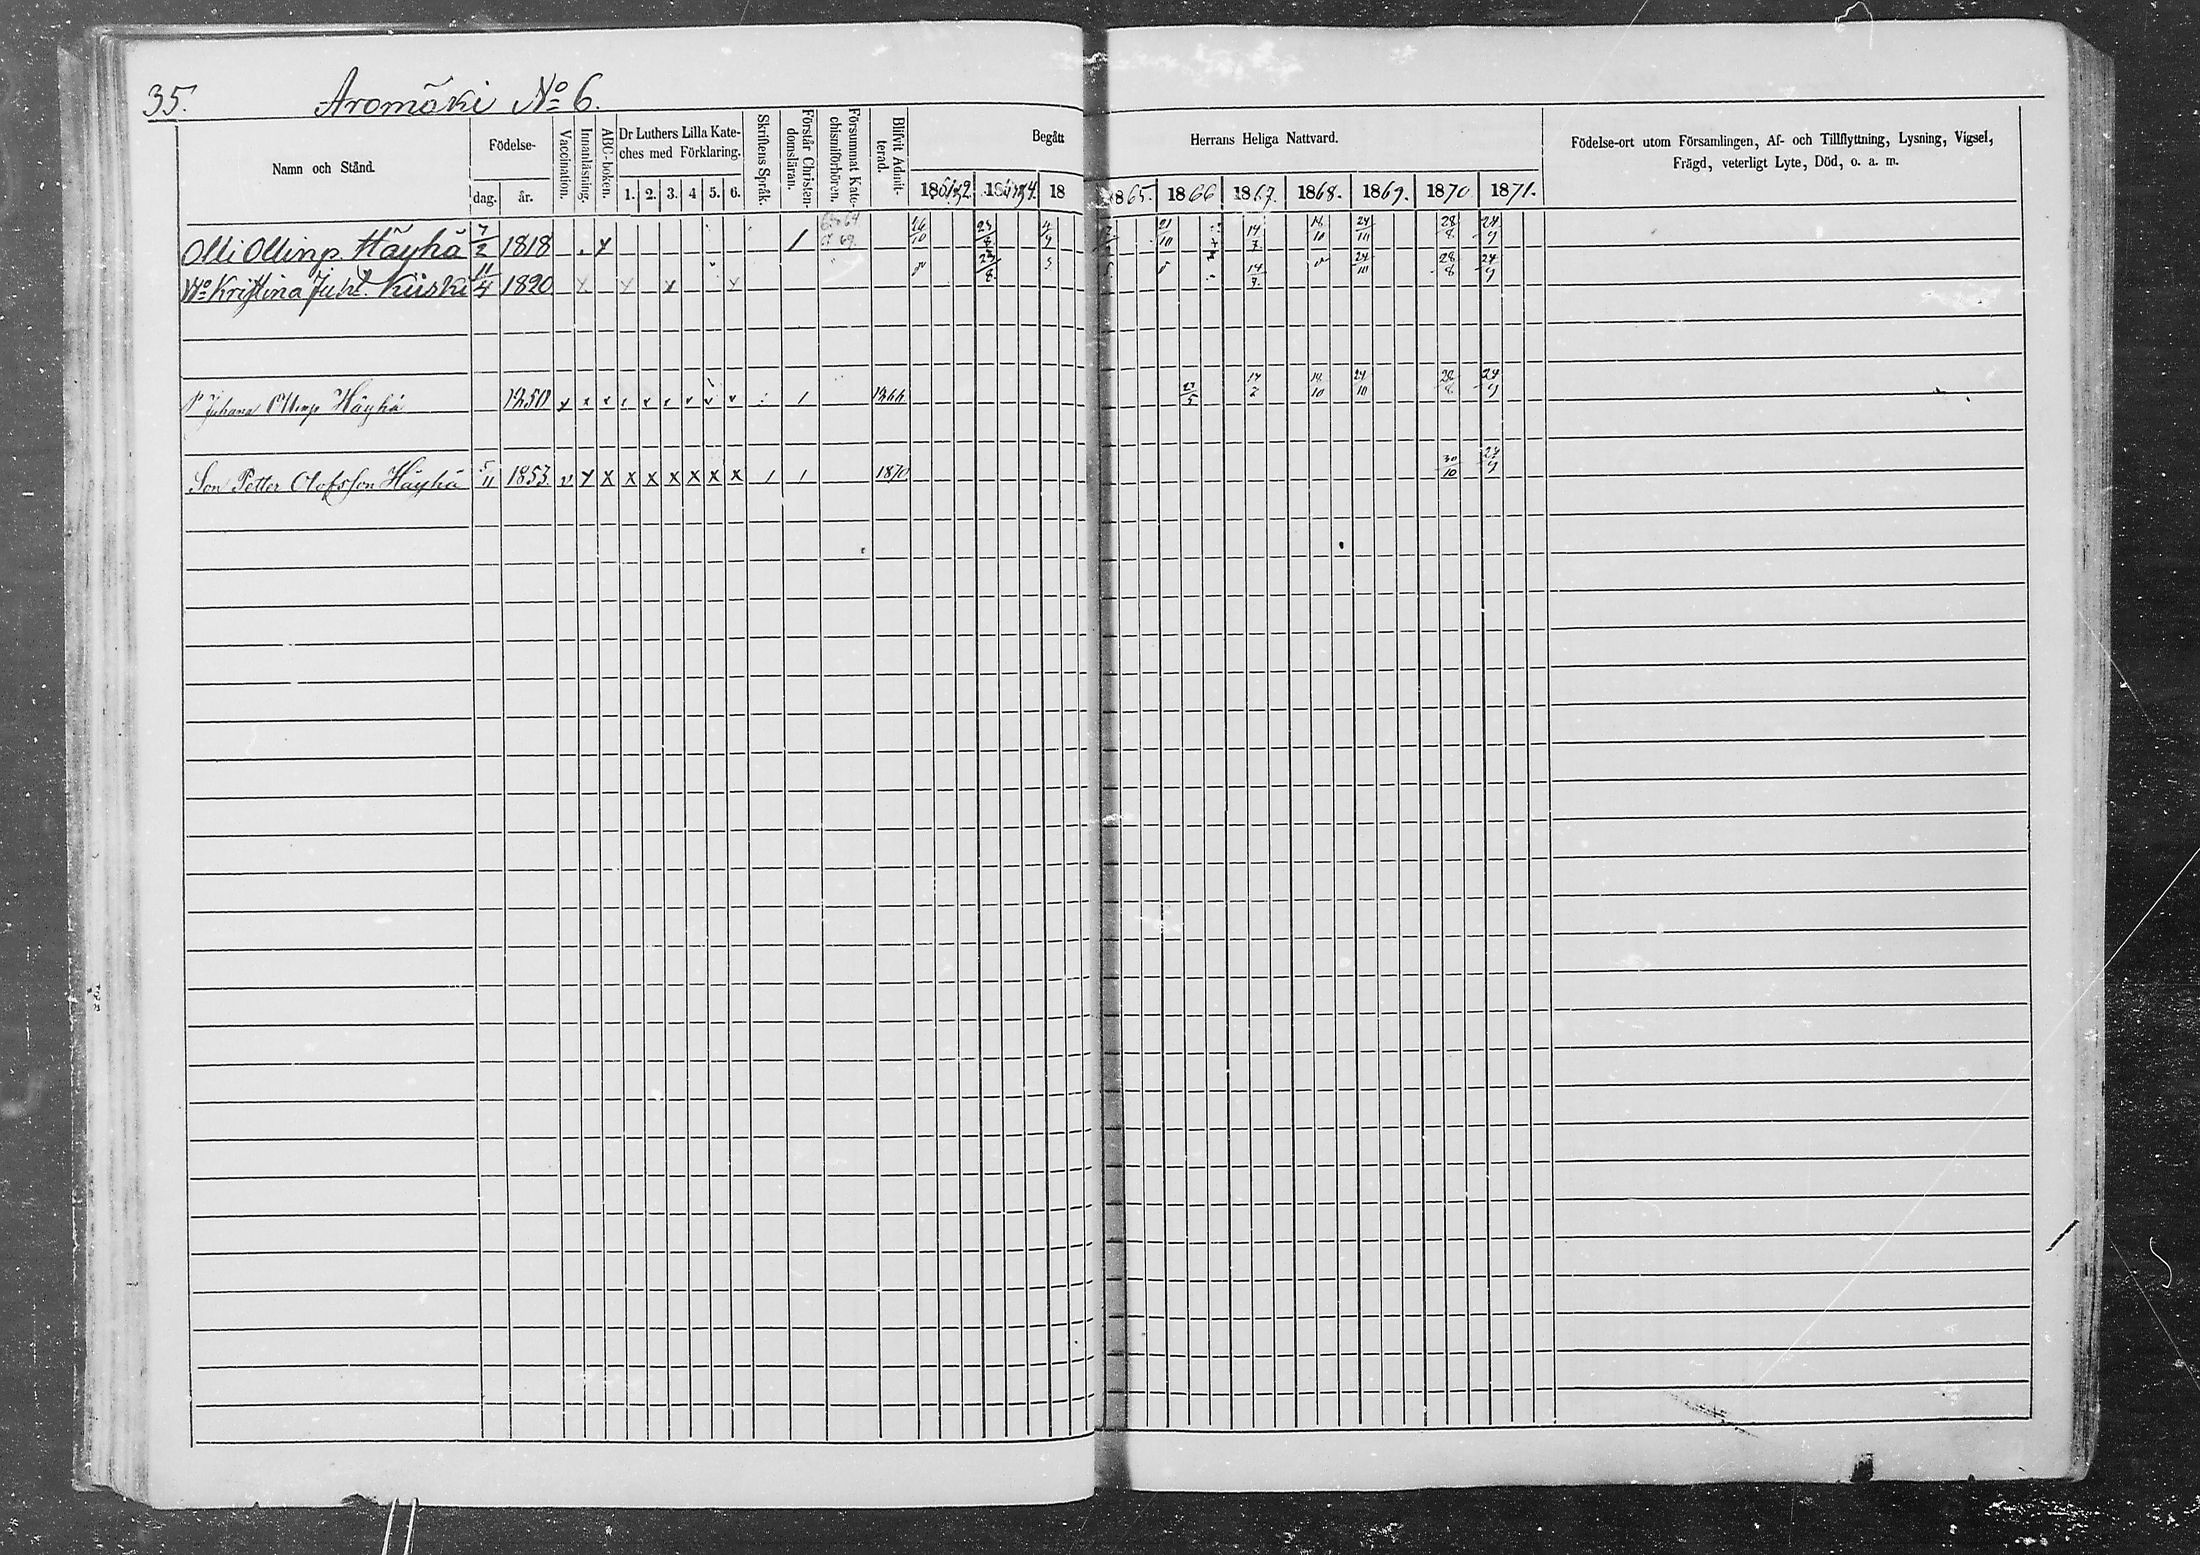 35. Aromäki No 6.
Namn och Stånd. Födelse- dag. år. Vaccination. Innanläsning. ABC-boken. Dr Luthers Lilla Kateches med Förklaring. 1. 2. 3. 4 5. 6. Skriftens Språk. Förstår Christendomsläran. Försummat Katechismiförhören. Blifvit Admitterad. Begått Herrans Heliga Nattvard. 18 1865. 1866 1867. 1868. 1869. 1870 1871. Födelse-ort utom Församlingen, Af- och Tillflyttning, Lysning, Vigsel, Frägd, veterligt Lyte, Död, o. a. m.
Olli Ollinp. Häyhä 7/2 1818 26/10 23/8 4/9 21/10 14/7 18/10 24/10 28/8 24/9
Kristina Juht. Kiiski 11/4 1820 23/8 14/7 24/10 28/8 24/9
P Juhana Ollinp Häyhä 1850 1866 14/7 18/10 24/10 28/8 24/9
Son Petter Olofsson Häyhä 5/11 1853 v x x x x x x x x 1870 30/10 24/9